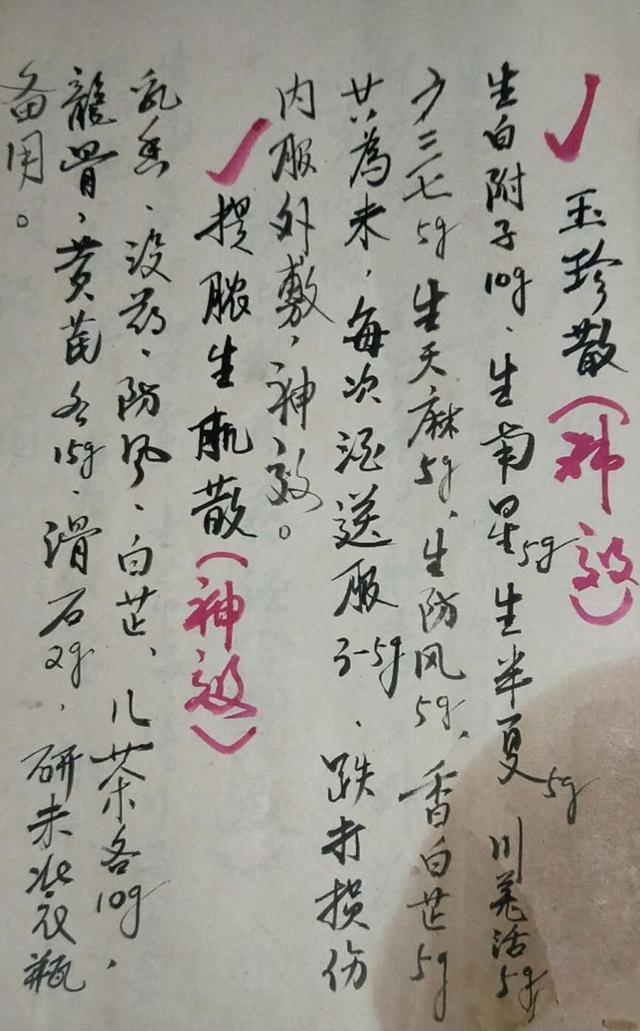 玉珍散（神效）
生白附子10g、生南星5g生半夏5g川羌活5g
三七5g生天麻5g、生防风5g、香白芷5g
共為末，每次酒送服3-5g、跌打损伤
内服外敷，神效。
提脓生肌散（神效）
乳香、没药、防风、白芷、儿茶各10g，
龍骨，黄芪各15g、滑石2g，研末装瓶
备用。